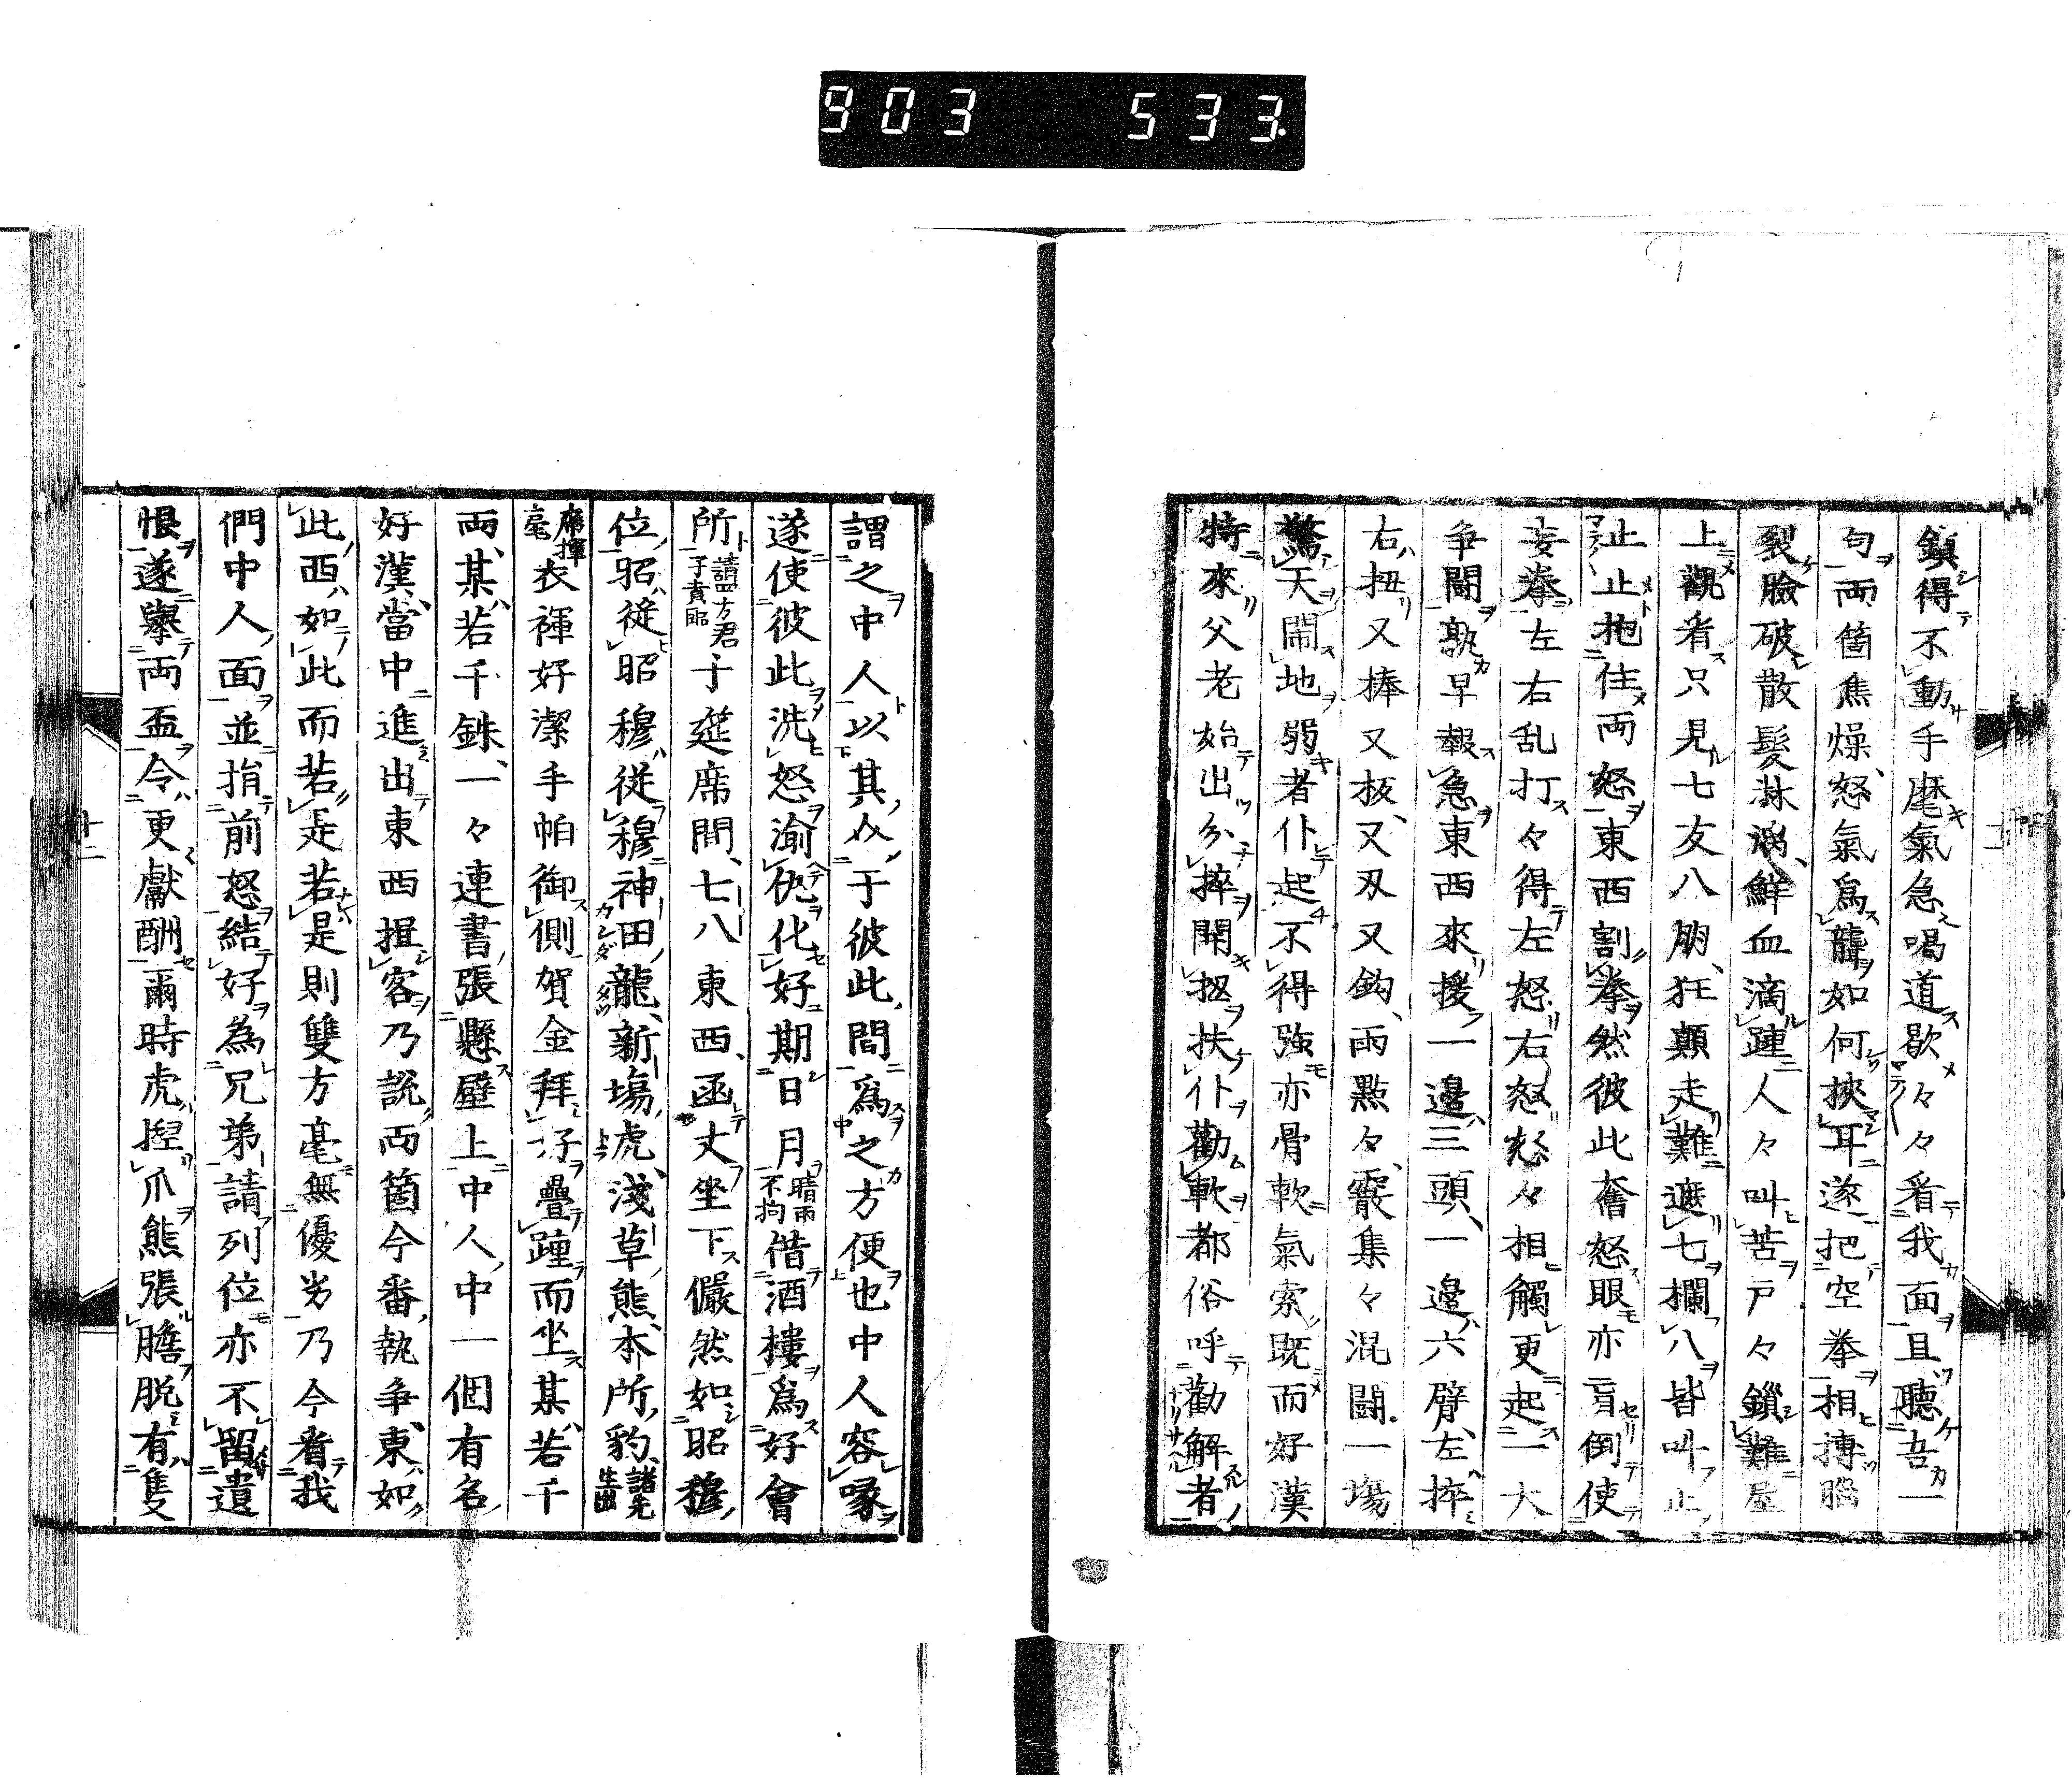 903 533
鎮得不動手麾氣急喝道歇々々看我面且聽吾一
句両箇焦燥怒氣爲聾如何挾耳遂把空拳相摶腦
裂臉破散髮淋漓鮮血滴踵人々叫苦戸々鎖難屋
上觀看只見七友八朋狂顛走難遮七欄八皆叫止
止止抱住両怒東西割拳然彼此奮怒眼亦盲倒使
妄拳左右乱打々得左怒右怒怒々相觸更起一大
争鬪孰早報急東西來援一邊三頭一邊六臂左捽
右扭又捧又扳又刄又鈎雨點々霰集々混鬪一場
驚天鬧地弱者仆起不得強亦骨軟氣索既而好漢
特來父老始出分捽開扭扶仆勸軟都俗呼勸解者
謂之中人以其㕕于彼此間爲之方便也中人容喙
遂使彼此洗怒渝仇化好期日月晴雨不拘借酒樓爲好會
所請四方君子責臨于筵席間七八東西函丈坐下儼然如昭穆
位昭從昭穆從穆神田龍新塲虎淺草熊本所豹諸先生出
席揮毫衣褌好潔手帕御側賀金拜好疊踵而坐某若干
両某若干銖一々連書張懸壁上中人中一個有名
好漢當中進出東西揖客乃説両箇今番執争東如
此西如此而若是若是則雙方毫無優劣乃今看我
們中人面並揖前怒結好為兄弟請列位亦不留遺
恨遂擧両盃令更獻酬爾時虎揑爪熊張膽脱有隻
十二